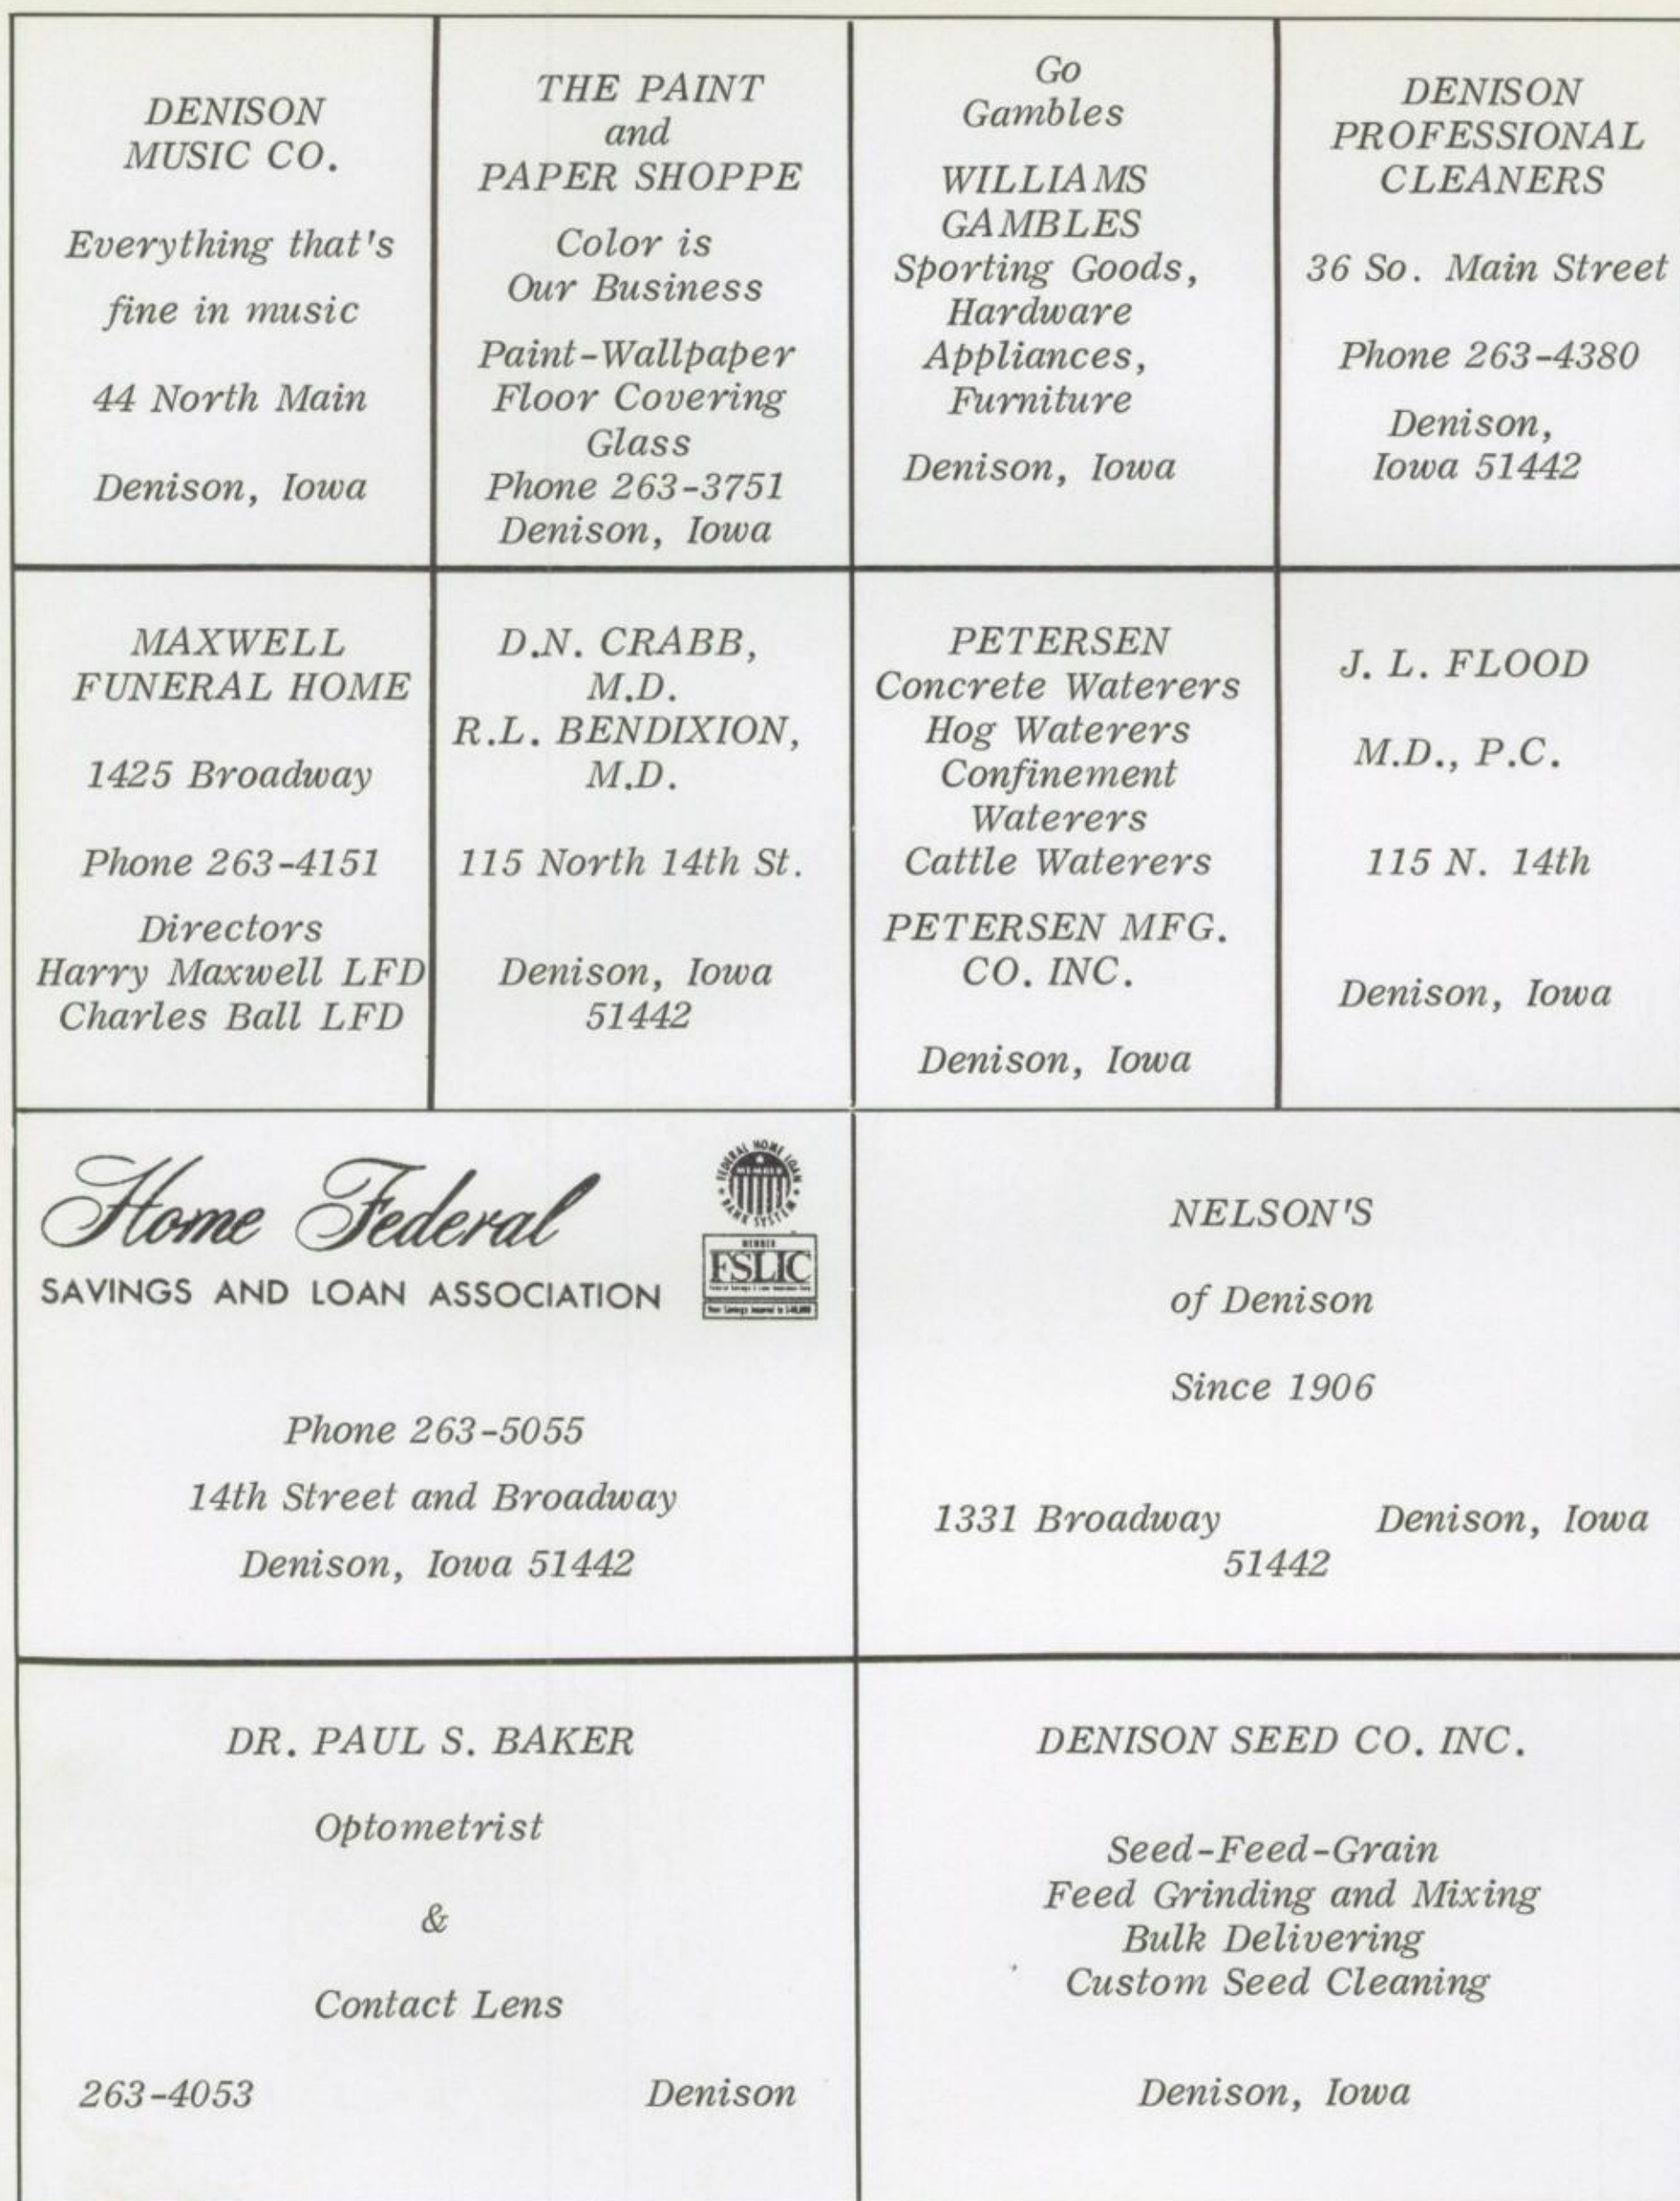 DENISON
MUSIC CO.
Everything that's
fine in music
44 North Main
Denison, Iowa
THE PAINT
and
PAPER SHOPPE
Color is
Our Business
Paint-Wallpaper
Floor Covering
Glass
Phone 263-3751
Denison, Iowa
Go
Gambles
WILLIAMS
GAMBLES
Sporting Goods,
Hardware
Appliances,
Furniture
Denison, Iowa
DENISON
PROFESSIONAL
CLEANERS
36 So. Main Street
Phone 263-4380
Denison,
Iowa 51442
MAXWELL
FUNERAL HOME
1425 Broadway
Phone 263-4151
Directors
Harry Maxwell LFD
Charles Ball LFD
D.N. CRABB,
M.D.
R.L. BENDIXION,
M.D.
115 North 14th St.
Denison, Iowa
51442
PETERSEN
Concrete Waterers
Hog Waterers
Confinement
Waterers
Cattle Waterers
PETERSEN MFG.
CO. INC.
Denison, Iowa
J. L. FLOOD
M.D., P.C.
115 N. 14th
Denison, Iowa
Home Federal
SAVINGS AND LOAN ASSOCIATION
FEDERAL HOME LOAN BANK SYSTEM
MEMBER
MEMBER
FSLIC
Phone 263-5055
14th Street and Broadway
Denison, Iowa 51442
NELSON'S
of Denison
Since 1906
1331 Broadway Denison, Iowa
51442
DR. PAUL S. BAKER
Optometrist
&
Contact Lens
263-4053 Denison
DENISON SEED CO. INC.
Seed-Feed-Grain
Feed Grinding and Mixing
Bulk Delivering
Custom Seed Cleaning
Denison, Iowa